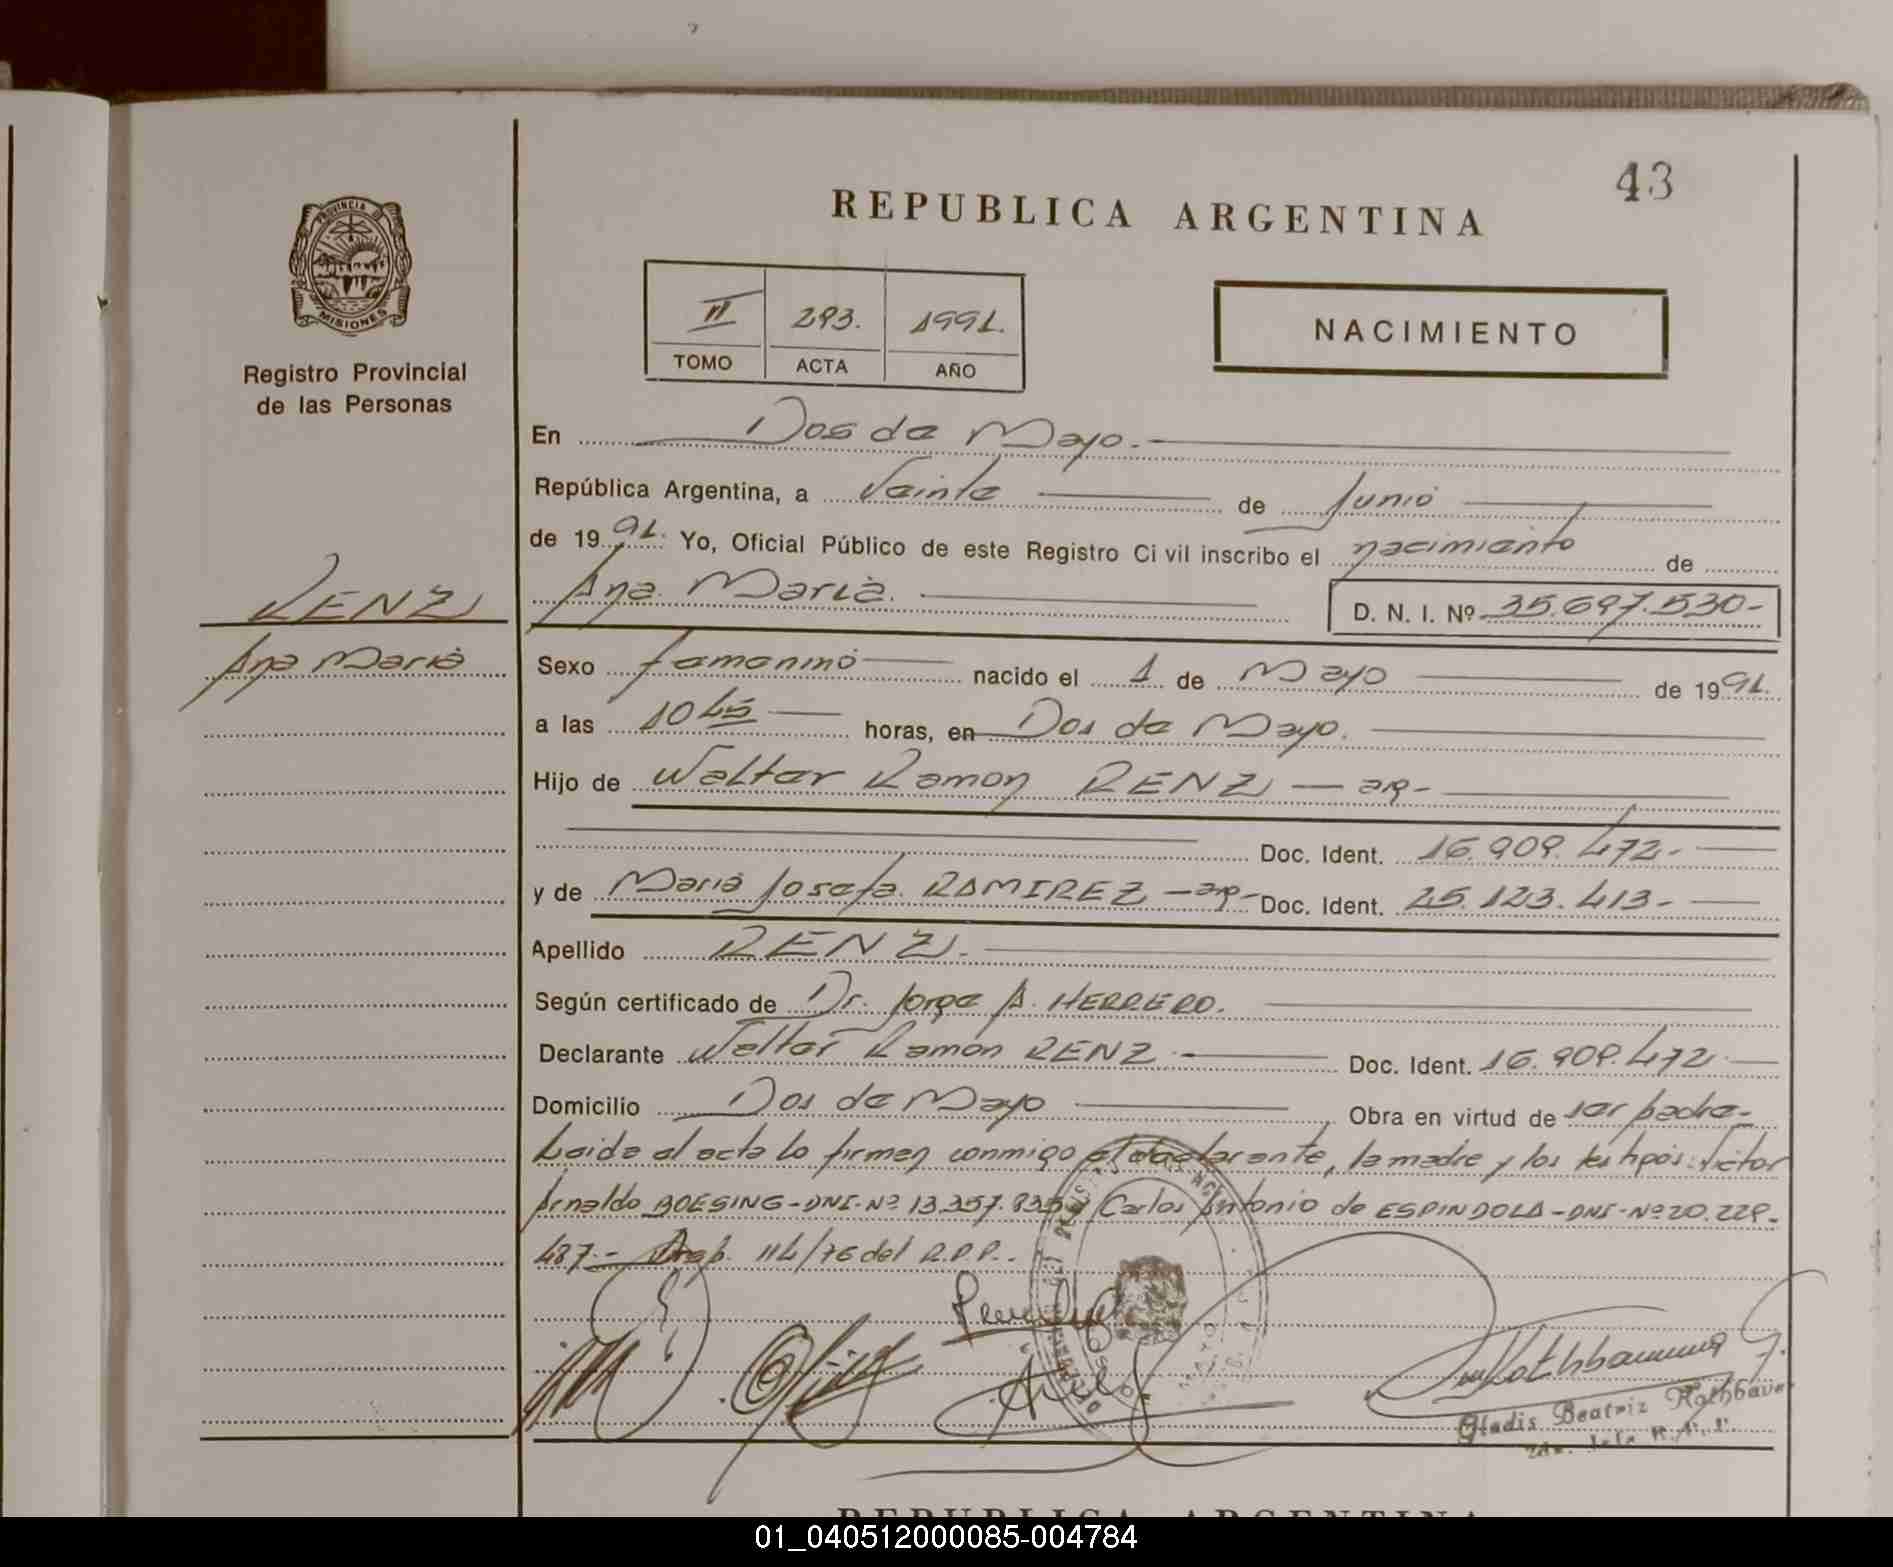 43
REPUBLICA ARGENTINA
PROVINCIA D
MISIONES
Registro Provincial
de las Personas
II 293. 1991.
TOMO ACTA AÑO
NACIMIENTO
En Dos de Mayo.
República Argentina, a Veinte de Junio
de 1991. Yo, Oficial Público de este Registro Civil inscribo el nacimiento de
RENZ
Ana María
Ana María. D. N. I. Nº 35.697.530-
Sexo femenino nacido el 1 de Mayo de 1991.
a las 10 45 horas, en Dos de Mayo.
Hijo de Walter Ramon RENZ — ar-
Doc. Ident. 16.909.472.-
y de María Josefa RAMIREZ - ar- Doc. Ident. 25.123.413.-
Apellido RENZ.-
Según certificado de Dr. Jorge A. HERRERO.
Declarante Walter Ramón RENZ.- Doc. Ident. 16.909.472.-
Domicilio Dos de Mayo Obra en virtud de ser padre-
Leida el acta lo firman conmigo el declarante, la madre y los testigos: Victor
Arnaldo BOESING-DNI-Nº 13.357.835 y Carlos Antonio de ESPINDOLA-DNI-Nº 20.229.
487.- 114/76 del R.P.P.-
Gladis Beatriz
REPUBLICA ARGENTINA
01_040512000085-004784